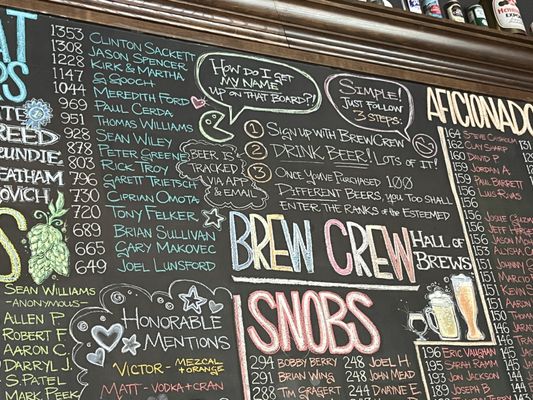 1353 CLINTON SACKETT
1308 JASON SPENCER
1228 KIRK & MARTHA
1147 G GOOCH
1044 MEREDITH FORD
969 PAUL CERDA
951 THOMAS WILLIAMS
928 SEAN WILEY
878 PETER GREENE
803 RICK TROY
796 GARETT TRIETSCH
730 CIPRIAN OMOTA
720 TONY FELKER
689 BRIAN SULLIVAN
665 GARY MAKOVEC
649 JOEL LUNSFORD
HOW DO I GET
MY NAME
UP ON THAT BOARD?
SIMPLE!
JUST FOLLOW
3 STEPS:
1 SIGN UP WITH BREW CREW
2 DRINK BEER! LOTS OF IT!
3 ONCE YOU'VE PURCHASED 100
DIFFERENT BEERS, YOU TOO SHALL
ENTER THE RANKS OF THE ESTEEMED
BEER IS
TRACKED
VIA APP
& EMAIL
BREW CREW
HALL OF
BREWS
SNOBS
294 BOBBY BERRY
291 BRIAN WING
287 TIM GRAGERT
248 JOEL H
248 JOHN MEAD
244 DWAYNE E
196 ERIC VAUGHAN
195 SARAH RAMM
193 JON JACKSON
189 JOSEPH B
HONORABLE
MENTIONS
VICTOR - MEZCAL
+ ORANGE
MATT - VODKA + CRAN
SEAN WILLIAMS
-ANONYMOUS-
ALLEN P
ROBERT F
AARON C.
DARRYL J.
S. PATEL
MARK PEEK
AFICIONADO
164 STEVE
162 CLAY SHARP
160 DAVID P
159 JORDAN A
158 PAUL BARRETT
156 LUIS RIVAS